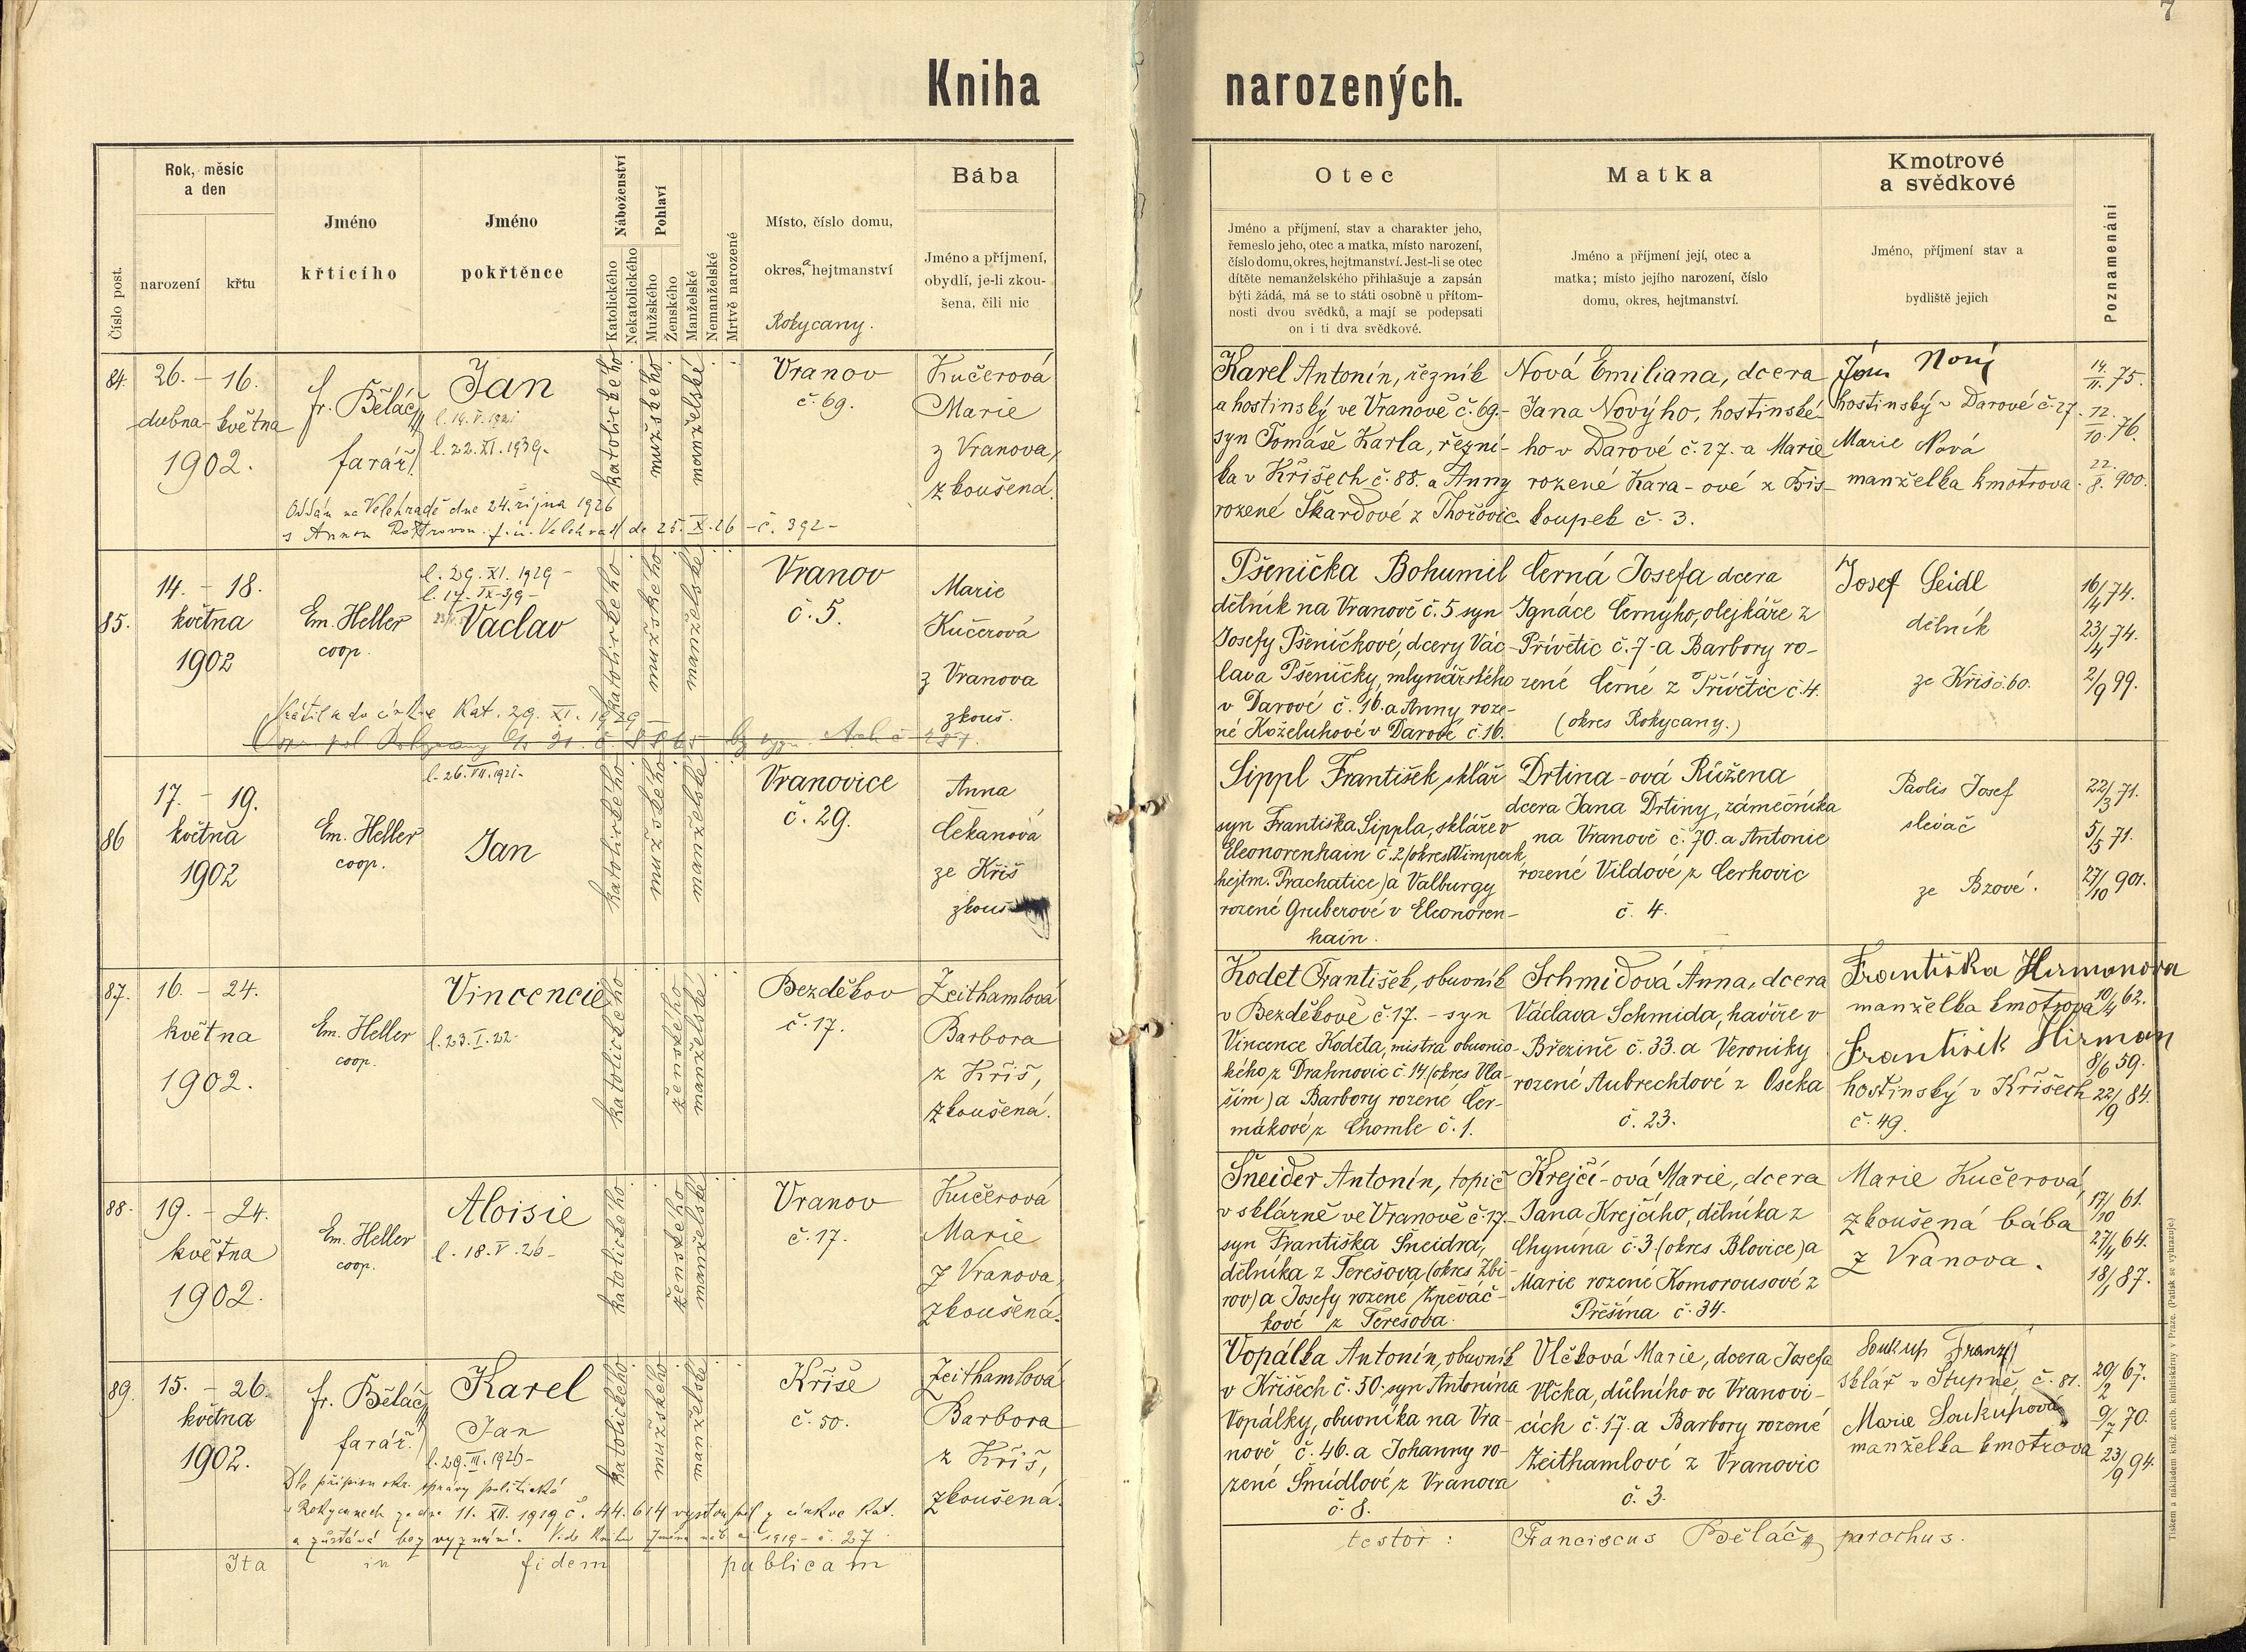 7
Kniha narozených.
Číslo post.
Rok, měsíc
a den
narození
křtu
Jméno
křtícího
Jméno
pokřtěnce
Náboženství
Katolického
Nekatolického
Pohlaví
Mužského
Ženského
Manželské
Nemanželské
Mrtvě narozené
Místo, číslo domu,
okres, a hejtmanství
Rokycany.
Bába
Jméno a příjmení,
obydlí, je-li zkou-
šena, čili nic
Otec
Jméno a příjmení, stav a charakter jeho,
řemeslo jeho, otec a matka, místo narození,
číslo domu, okres, hejtmanství. Jest-li se otec
dítěte nemanželského přihlašuje a zapsán
býti žádá, má se to státi osobně u přítom-
nosti dvou svědků, a mají se podepsati
on i ti dva svědkové.
Matka
Jméno a příjmení její, otec a
matka; místo jejího narození, číslo
domu, okres, hejtmanství.
Kmotrové
a svědkové
Jméno, příjmení stav a
bydliště jejich
Poznamenání
84.
26. - 16.
dubna - května
1902.
fr. Běláč
farář
Jan
l. 14. V. 1921
l. 22. XI. 1939.
katolického
mužského
manželské
Vranov
č. 69.
Kučerová
Marie
z Vranova,
zkoušená.
Oddán na Velehradě dne 24. října 1926
s Annou f. ú. Velehrad de 25. X. 26 - č. 392 -
Karel Antonín, řezník
a hostinský ve Vranově č. 69.-
syn Tomáše Karla, řezní-
ka v Křišech č. 88. a Anny
rozené Škardové z Thořovic.
Nová Emiliana, dcera
Jana Novýho, hostinské-
ho v Darové č. 27. a Marie
rozené Kara-ové z Bis-
koupek č. 3.
Jan Nový
hostinský v Darové č. 27.
Marie Nová
manželka kmotrova.
14./11. 75.
12./10. 76.
22./8. 900.
85.
14. - 18.
května
1902
Em. Heller
coop.
l. 29. XI. 1929 -
l. 17. IX-39 -
Václav
katolického
mužského
manželské
Vranov
č. 5.
Marie
Kučerová
z Vranova
zkouš.
do církve Kat. 29. XI. 1929 -
Pšenička Bohumil
dělník na Vranově č. 5 syn
Josefy Pšeničkové, dcery Vác-
lava Pšeničky, mlynářského
v Darové č. 16. a Anny roze-
né Koželuhové v Darové č. 16.
Černá Josefa dcera
Ignáce Černýho, olejkáře z
Přívětic č. 7 - a Barbory ro-
zené Černé z Přívětic č. 4.
(okres Rokycany.)
Josef Seidl
dělník
ze Křiš č. 60.
16/4 74.
23/4 74.
2/9 99.
86
17. - 19.
května
1902
Em. Heller
coop.
l. 26. VII. 1921.
Jan
katolického
mužského
manželské
Vranovice
č. 29.
Anna
Čekanová
ze Křiš
zkouš
Sippl František, sklář
syn Františka Sippla, skláře v
Eleonorenhain č. 2 (okres Wimperk,
hejtm. Prachatice) a Valburgy
rozené Gruberové v Eleonoren-
hain.
Drtina-ová Růžena
dcera Jana Drtiny, zámečníka
na Vranově č. 70. a Antonie
rozené Vildové z Cerhovic
č. 4.
Pavlis Josef
slevač
ze Bzové.
22/3 71.
5/5 71.
27/10 901.
87.
16. - 24.
května
1902.
Em. Heller
coop.
Vincencie
l. 23. I. 22.
katolického
ženského
manželské
Bezděkov
č. 17.
Zeithamlová
Barbora
z Kříš,
zkoušená.
Kodet František, obuvník
v Bezděkově č. 17. - syn
Vincence Kodeta, mistra obuvnic-
kého z Drahnovic č. 14. (okres Vla-
šim) a Barbory rozené Čer-
mákové z Chomle č. 1.
Schmidová Anna, dcera
Václava Schmida, havíře v
Březině č. 33. a Veroniky
rozené Aubrechtové z Oseka
č. 23.
Františka Hirmanova
manželka kmotrova
František Hirman
hostinský v Křišech
č. 49.
10/4 62.
8/6 59.
22/9 84.
88.
19. - 24.
května
1902.
Em. Heller
coop.
Aloisie
l. 18. V. 26 -
katolického
ženského
manželské
Vranov
č. 17.
Kučerová
Marie
z Vranova,
zkoušená.
Šneider Antonín, topič
v sklárně ve Vranově č. 17.-
syn Františka Šneidra,
dělníka z Terešova (okres Zbi-
rov) a Josefy rozené Zpěváč-
kové z Terešova.
Krejčí-ová Marie, dcera
Jana Krejčího, dělníka z
Chynína č. 3 (okres Blovice) a
Marie rozené Komorousové z
Přešína č. 34.
Marie Kučerová,
zkoušená bába
z Vranova.
17/10 61.
27/4 64.
18/1 87.
89.
15. - 26.
května
1902.
fr. Běláč
farář.
Karel
Jan
l. 29. III. 1926 -
katolického
mužského
manželské
Kříše
č. 50.
Zeithamlová
Barbora
z Kříš,
zkoušená.
Dle přípisu okr. správy politické
v Rokycanech ze dne 11. XII. 1919 č. 44.614 vystoupil z církve Kat.
a zůstává bez vyznání. 1919 - č. 27
Vopálka Antonín, obuvník
v Křišech č. 50. syn Antonína
Vopálky, obuvníka na Vra-
nově č. 46. a Johanny ro-
zené Šmídlové z Vranova
č. 8.
Vlčková Marie, dcera Josefa
Vlčka, důlního ve Vranovi-
cích č. 17. a Barbory rozené
Zeithamlové z Vranovic
č. 3.
Soukup Franz
sklář v Stupně, č. 81.
Marie Soukupová
manželka kmotrova
20/2 67.
9/7 70.
23/9 94.
Ita in fidem publicam
testor: Franciscus Běláč, parochus.
Tiskem a nákladem kníž. arcib. knihtiskárny v Praze. (Patisk se vyhrazuje.)